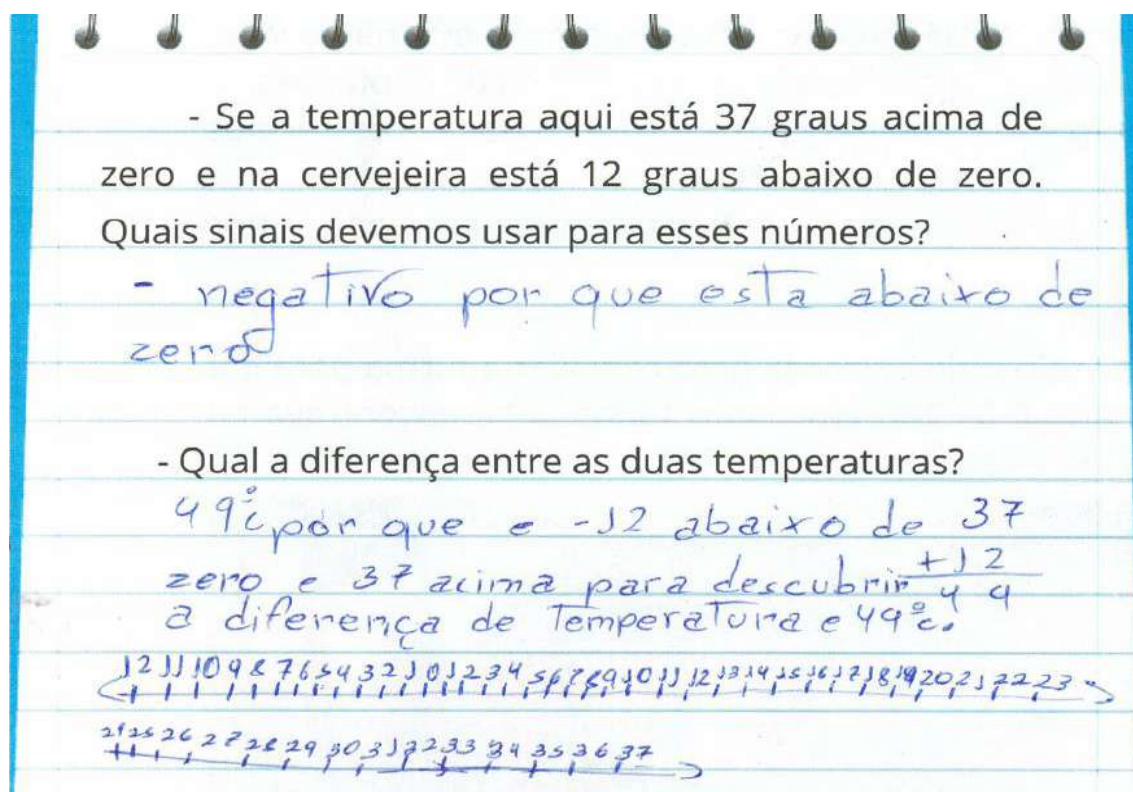 - Se a temperatura aqui está 37 graus acima de
zero e na cervejeira está 12 graus abaixo de zero.
Quais sinais devemos usar para esses números?
- negativo por que esta abaixo de
zero
- Qual a diferença entre as duas temperaturas?
49°c por que e -12 abaixo de 37
zero e 37 acima para descubrir +12
a diferença de Temperatura e 49°c. 49
12 11 10 9 8 7 6 5 4 3 2 1 0 1 2 3 4 5 6 7 8 9 10 11 12 13 14 15 16 17 18 19 20 21 22 23
24 25 26 27 28 29 30 31 32 33 34 35 36 37